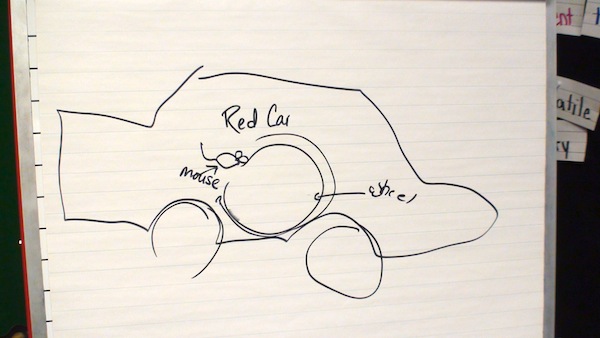 Red Car
mouse
wheel
atile